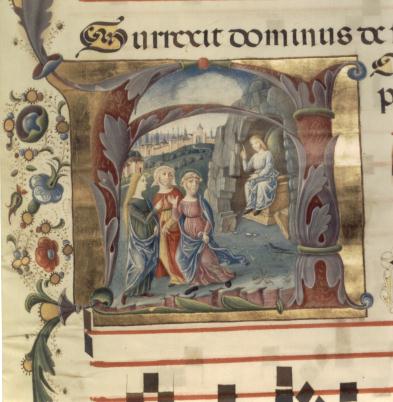 Surrexit dominus de